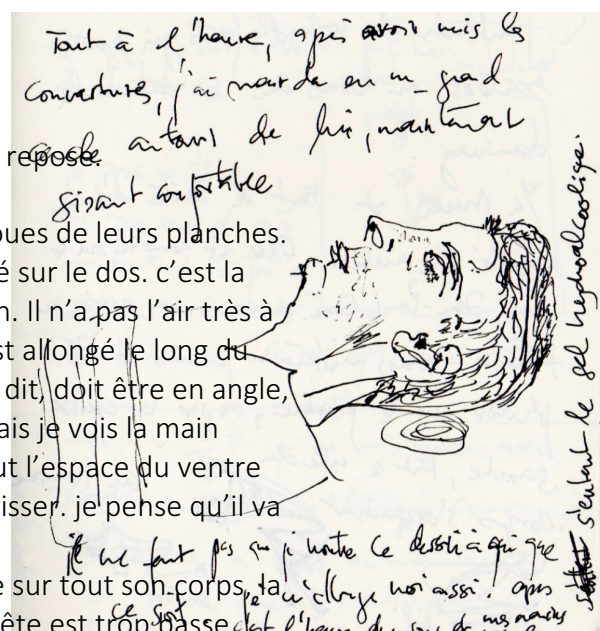 Tout à l'heure, après avoir mis les
couvertures, j'ai marché en un grand
cercle autour de lui, maintenant
gisant confortable
repose.
oues de leurs planches.
é sur le dos. c'est la
n. Il n'a pas l'air très à
st allongé le long du
dit, doit être en angle,
ais je vois la main
ut l'espace du ventre
isser. je pense qu'il va
e sur tout son corps, la
ête est trop basse
il ne faut pas que je montre ce dessin à qui que
ce soit. je m'allonge moi aussi. après
c'est l'heure du mes mains
sentent le gel hydroalcoolique.